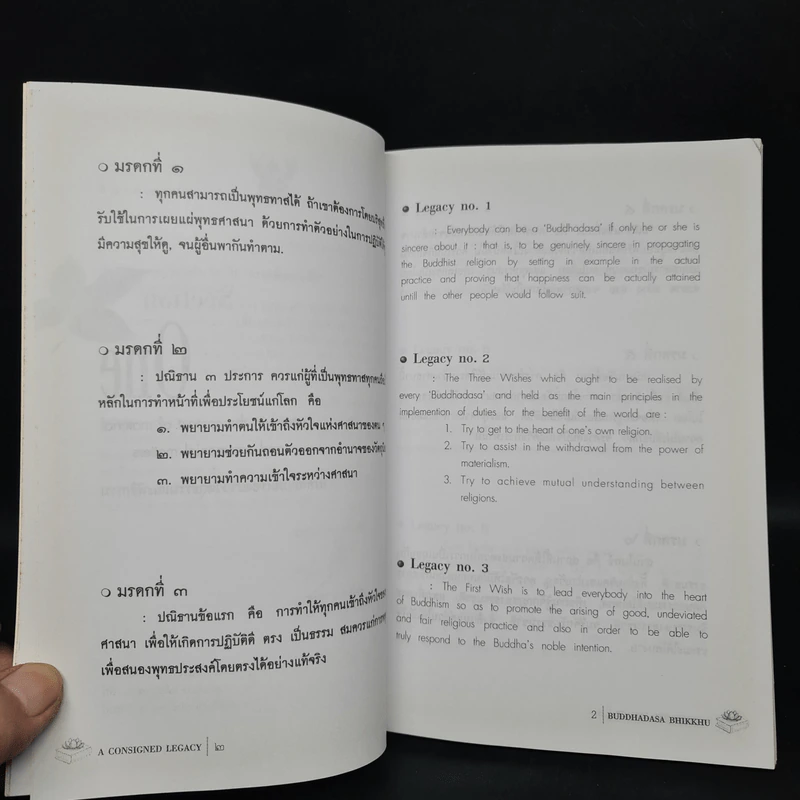 ๐ มรดกที่ ๑
: ทุกคนสามารถเป็นพุทธทาสได้ ถ้าเขาต้องการโดยบริสุทธิ์
รับใช้ในการเผยแผ่พุทธศาสนา ด้วยการทำตัวอย่างในการปฏิบัติ
มีความสุขให้ดู, จนผู้อื่นพากันทำตาม.
๐ มรดกที่ ๒
: ปณิธาน ๓ ประการ ควรแก่ผู้ที่เป็นพุทธทาสทุกคน
หลักในการทำหน้าที่เพื่อประโยชน์แก่โลก คือ
๑. พยายามทำตนให้เข้าถึงหัวใจแห่งศาสนาของตน ๆ
๒. พยายามช่วยกันถอนตัวออกจากอำนาจของวัตถุ
๓. พยายามทำความเข้าใจระหว่างศาสนา
๐ มรดกที่ ๓
: ปณิธานข้อแรก คือ การทำให้ทุกคนเข้าถึงหัวใจ
ศาสนา เพื่อให้เกิดการปฏิบัติดี ตรง เป็นธรรม สมควรแก่การ
เพื่อสนองพุทธประสงค์โดยตรงได้อย่างแท้จริง
A CONSIGNED LEGACY | ๒
● Legacy no. 1
: Everybody can be a 'Buddhadasa' if only he or she is
sincere about it : that is, to be genuinely sincere in propagating
the Buddhist religion by setting in example in the actual
practice and proving that happiness can be actually attained
untill the other people would follow suit.
● Legacy no. 2
: The Three Wishes which ought to be realised by
every 'Buddhadasa' and held as the main principles in the
implemention of duties for the benefit of the world are :
1. Try to get to the heart of one's own religion.
2. Try to assist in the withdrawal from the power of
materialism.
3. Try to achieve mutual understanding between
religions.
● Legacy no. 3
: The First Wish is to lead everybody into the heart
of Buddhism so as to promote the arising of good, undeviated
and fair religious practice and also in order to be able to
truly respond to the Buddha's noble intention.
2 | BUDDHADASA BHIKKHU